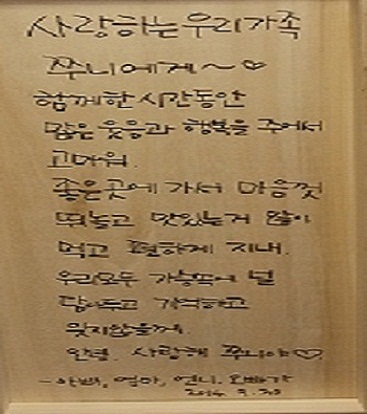 사랑하는 우리가족
쭈니에게~♡
함께한 시간동안
많은 웃음과 행복을 주어서
고마워.
좋은곳에 가서 마음껏
뛰놀고 맛있는거 많이
먹고 편하게 지내.
우리모두 가슴속에 널
담아두고 기억하고
잊지않을께.
안녕. 사랑해 쭈니야♡
-아빠, 엄마, 언니, 오빠가